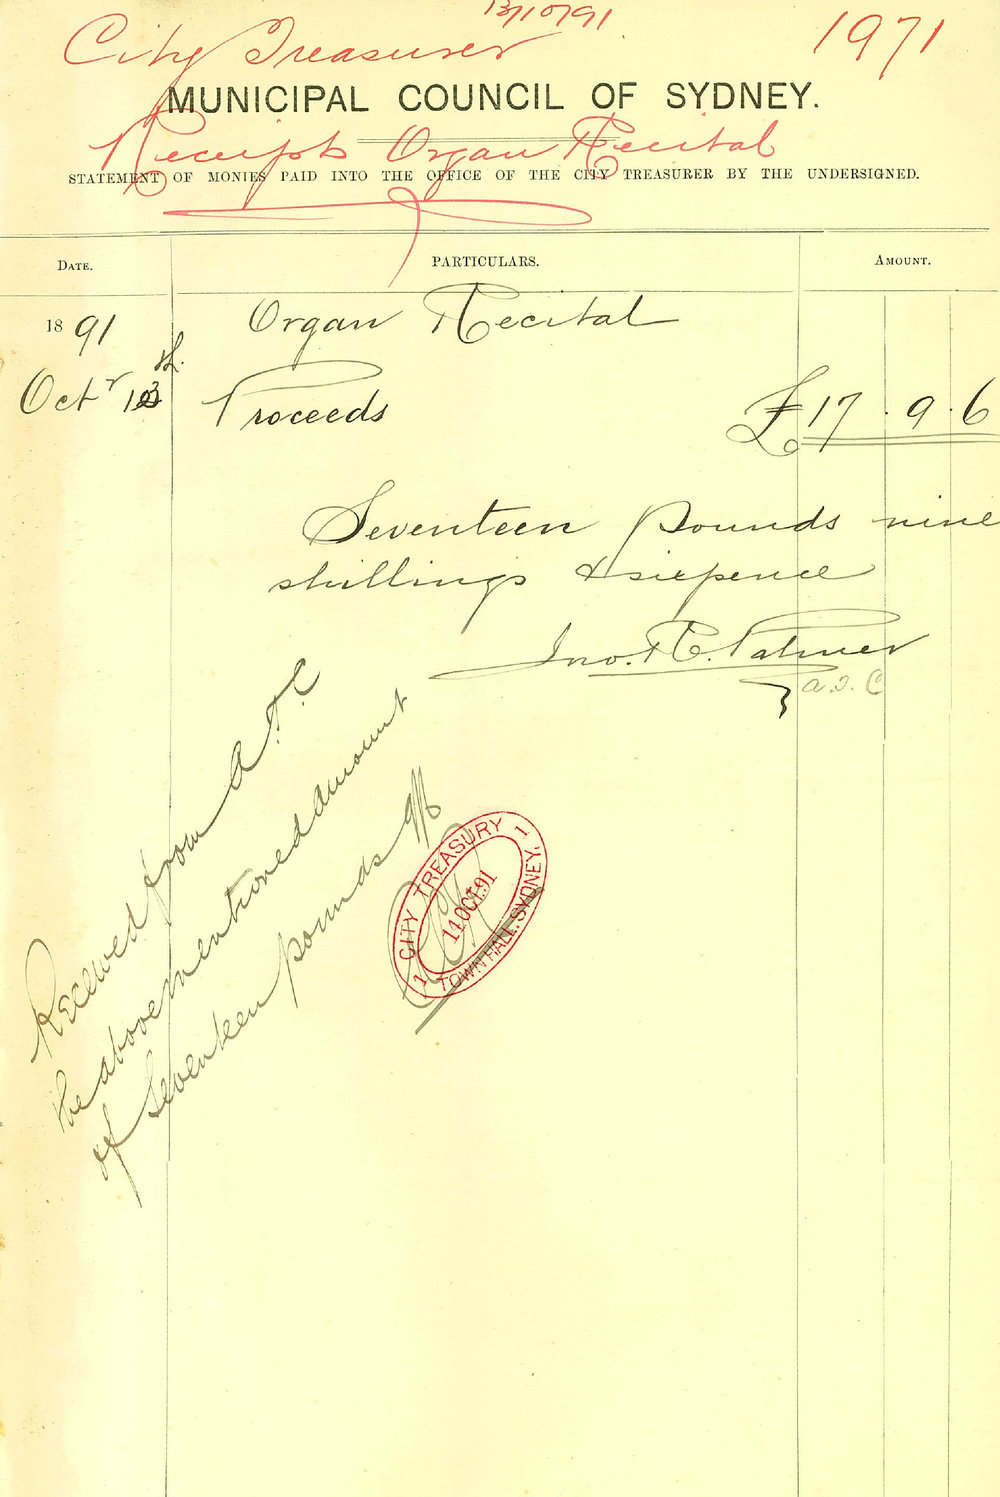 13/10/91
1971
City Treasurer
MUNICIPAL COUNCIL OF SYDNEY.
Receipts Organ Recital
STATEMENT OF MONIES PAID INTO THE OFFICE OF THE CITY TREASURER BY THE UNDERSIGNED.
DATE. PARTICULARS. AMOUNT.
1891 Organ Recital
Octr 13th. Proceeds £17.9.6
Seventeen pounds nine
shillings & sixpence
Jno. R. Palmer
a.T.C
Received from A.T.C
the abovementioned amount
of Seventeen pounds 9/6
1 CITY TREASURY 1
14 OCT. 91
TOWN HALL. SYDNEY.